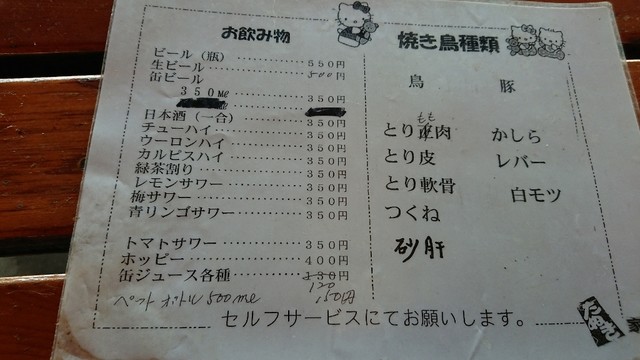 お飲み物
ビール（瓶）‥‥‥‥550円
生ビール‥‥‥‥500円
缶ビール
350ml‥‥‥‥350円
日本酒（一合）‥‥‥‥350円
チューハイ‥‥‥‥350円
ウーロンハイ‥‥‥‥350円
カルピスハイ‥‥‥‥350円
緑茶割り‥‥‥‥350円
レモンサワー‥‥‥‥350円
梅サワー‥‥‥‥350円
青リンゴサワー‥‥‥‥350円
トマトサワー‥‥‥‥350円
ホッピー‥‥‥‥400円
缶ジュース各種‥‥‥‥130円
120
ペットボトル500ml 150円
焼き鳥種類
鳥
もも
とり肉
とり皮
とり軟骨
つくね
砂肝
豚
かしら
レバー
白モツ
セルフサービスにてお願いします。
たぬき